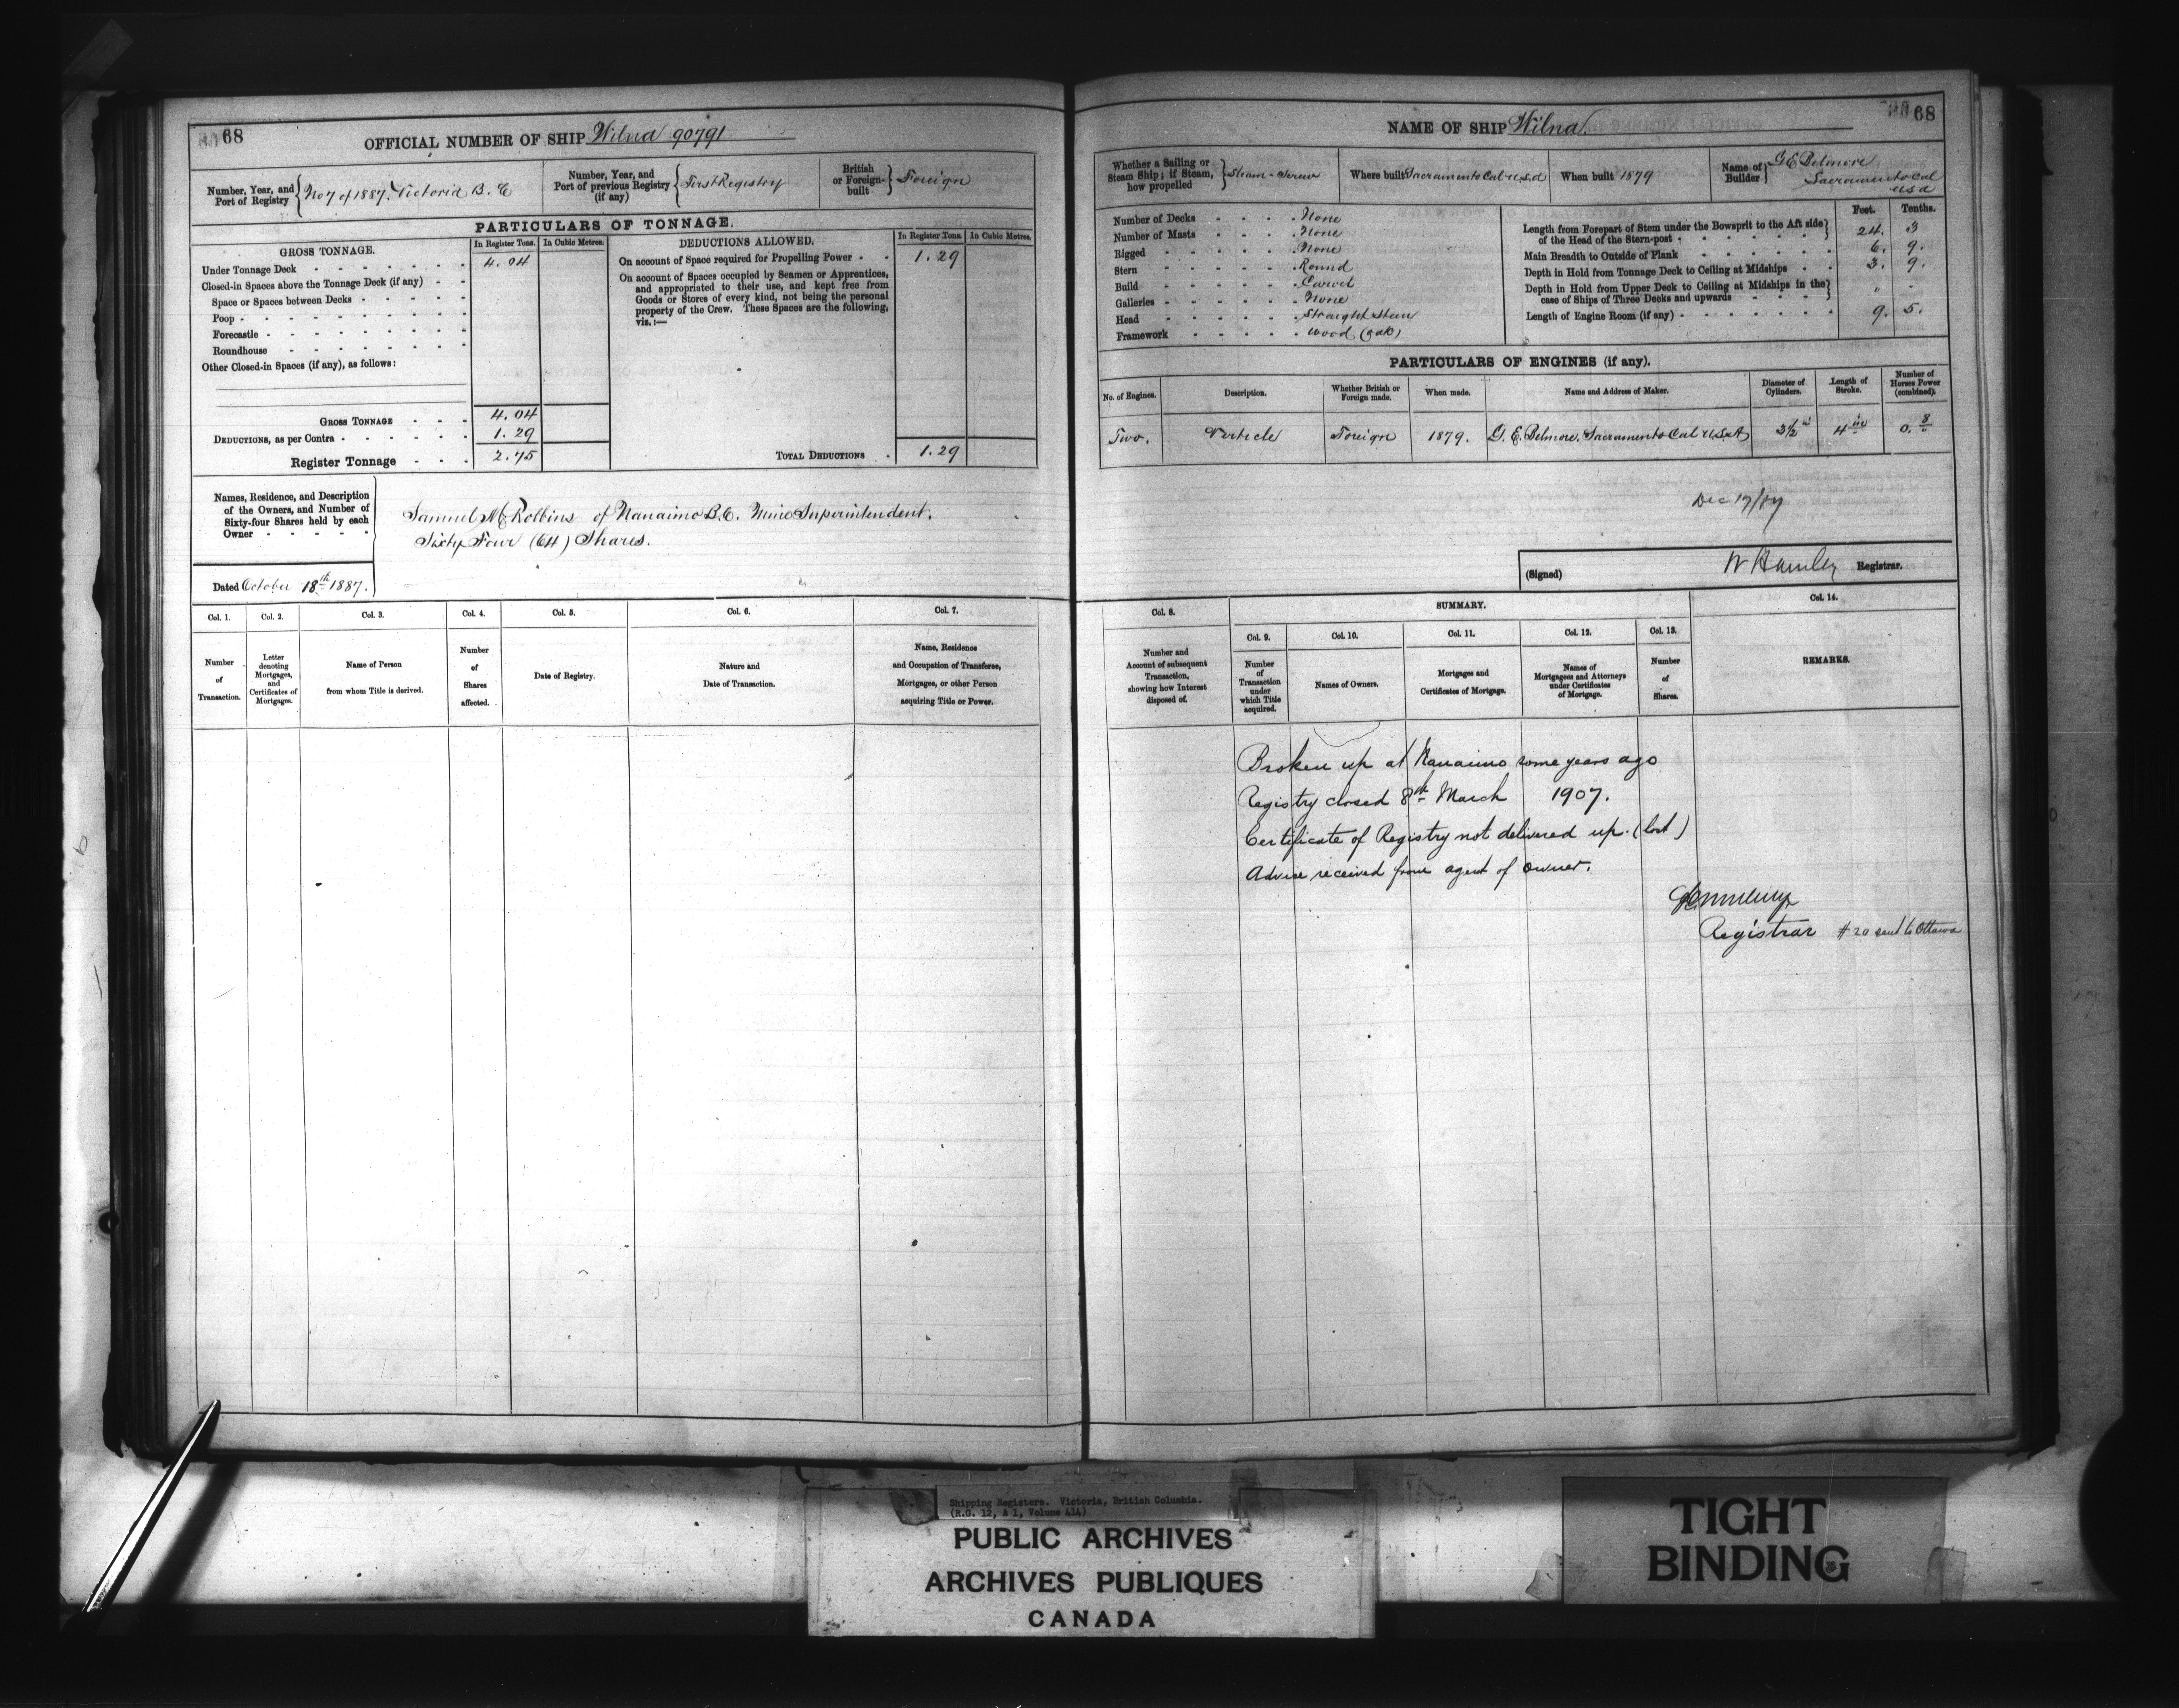 68
OFFICIAL NUMBER OF SHIP Wilna 90791
Number, Year, and Port of Registry { No 7 of 1887. Victoria B.C
Number, Year, and Port of previous Registry (if any) { First Registry
British or Foreign-built } Foreign
PARTICULARS OF TONNAGE.
GROSS TONNAGE. In Register Tons. In Cubic Metres.
Under Tonnage Deck 4.04
Closed-in Spaces above the Tonnage Deck (if any)
Space or Spaces between Decks
Poop
Forecastle
Roundhouse
Other Closed-in Spaces (if any), as follows:
GROSS TONNAGE 4.04
DEDUCTIONS, as per Contra 1.29
Register Tonnage 2.75
DEDUCTIONS ALLOWED. In Register Tons. In Cubic Metres.
On account of Space required for Propelling Power 1.29
On account of Spaces occupied by Seamen or Apprentices,
and appropriated to their use, and kept free from
Goods or Stores of every kind, not being the personal
property of the Crew. These Spaces are the following,
viz.:—
TOTAL DEDUCTIONS 1.29
Names, Residence, and Description
of the Owners, and Number of
Sixty-four Shares held by each
Owner
Samuel M Robins of Nanaimo B.C. Mine Superintendent.
Sixty Four (64) Shares.
Dated October 18th 1887.
Col. 1. Col. 2. Col. 3. Col. 4. Col. 5. Col. 6. Col. 7.
Number of Transaction.
Letter denoting Mortgages, and Certificates of Mortgages.
Name of Person from whom Title is derived.
Number of Shares affected.
Date of Registry.
Nature and Date of Transaction.
Name, Residence and Occupation of Transferee, Mortgages, or other Person acquiring Title or Power.
68
NAME OF SHIP Wilna.
Whether a Sailing or Steam Ship; if Steam, how propelled } Steam - Screw
Where built Sacramento Cal U.S.A
When built 1879
Name of Builder } G E Belmore
Sacramento Cal
USA
Number of Decks None
Number of Masts None
Rigged None
Stern Round
Build Carvel
Galleries None
Head Straight Stem
Framework Wood (oak)
Feet. Tenths.
Length from Forepart of Stem under the Bowsprit to the Aft side of the Head of the Stern-post 24. 3
Main Breadth to Outside of Plank 6. 9.
Depth in Hold from Tonnage Deck to Ceiling at Midships 3. 9.
Depth in Hold from Upper Deck to Ceiling at Midships in the case of Ships of Three Decks and upwards " -
Length of Engine Room (if any) 9. 5.
PARTICULARS OF ENGINES (if any).
No. of Engines. Description. Whether British or Foreign made. When made. Name and Address of Maker. Diameter of Cylinders. Length of Stroke. Number of Horses Power (combined).
Two. Verticle Foreign 1879. G. E. Belmore. Sacramento Cal U.S.A 3½ in 4 in 0. 8
Dec 17/87
(Signed) W Hamley Registrar.
Col. 8. SUMMARY. Col. 14.
Col. 9. Col. 10. Col. 11. Col. 12. Col. 13.
Number and Account of subsequent Transaction, showing how Interest disposed of.
Number of Transaction under which Title acquired.
Names of Owners.
Mortgages and Certificates of Mortgage.
Names of Mortgagees and Attorneys under Certificates of Mortgage.
Number of Shares.
REMARKS.
Broken up at Nanaimo some years ago
Registry closed 8th March 1907.
Certificate of Registry not delivered up. (lost)
Advice received from agent of owner.
Registrar #20 sent to Ottawa
Shipping Registers. Victoria, British Columbia.
(R.G. 12, A 1, Volume 414)
PUBLIC ARCHIVES
ARCHIVES PUBLIQUES
CANADA
TIGHT
BINDING